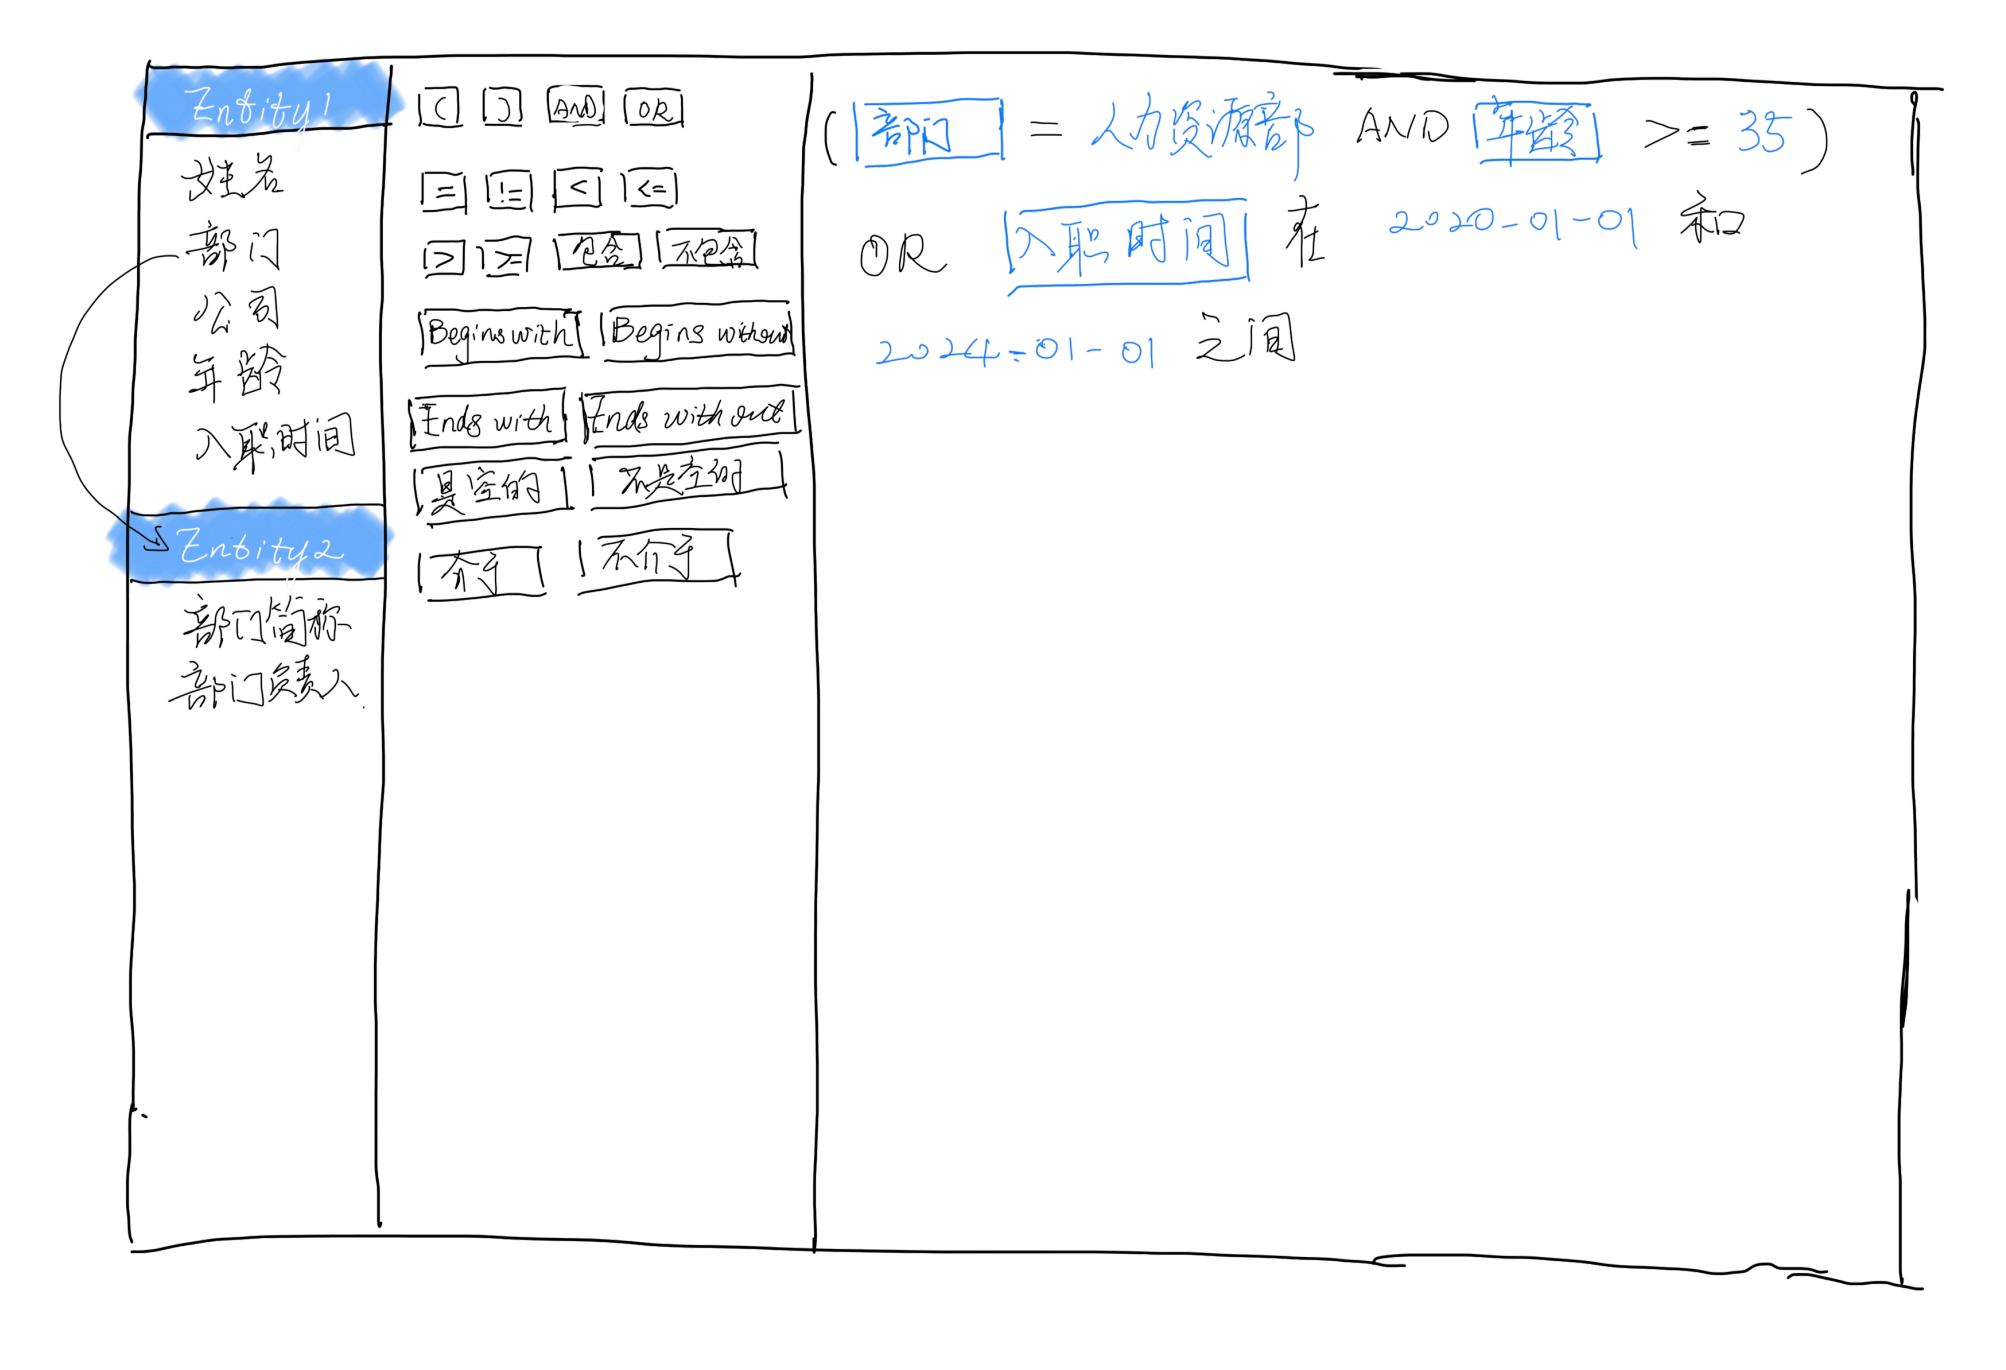 Entity1
姓名
部门
公司
年龄
入职时间
Entity2
部门简称
部门负责人
( ) AND OR
= != < <=
> >= 包含 不包含
Begins with Begins without
Ends with Ends without
是空的 不是空的
介于 不介于
( 部门 = 人力资源部 AND 年龄 >= 35 )
OR 入职时间 在 2020-01-01 和
2024-01-01 之间